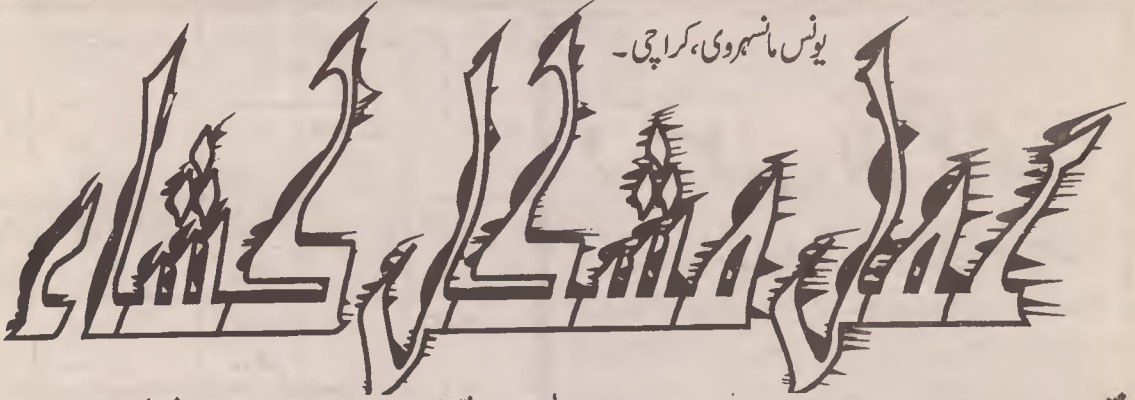 یونس مانسہروی، کراچی۔
عمل مشکل کشاء